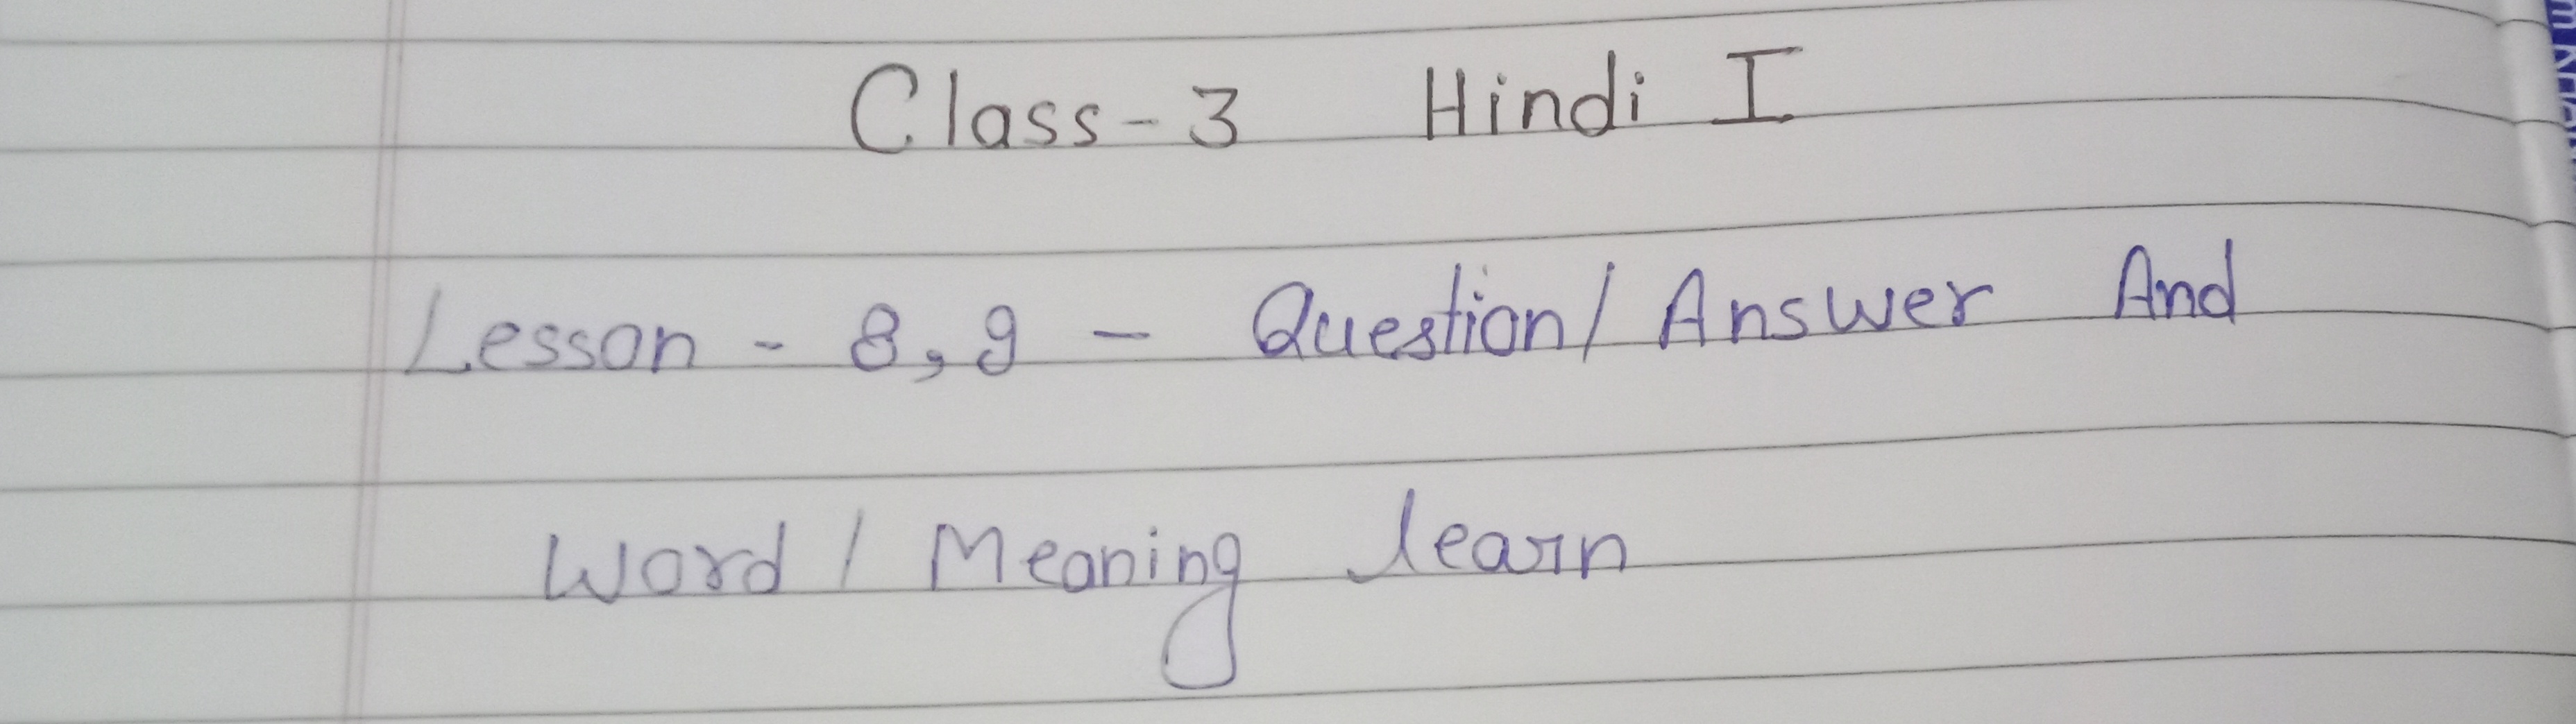 Class-3 Hindi I
Lesson - 8,9 - Question/Answer And
Word / Meaning learn